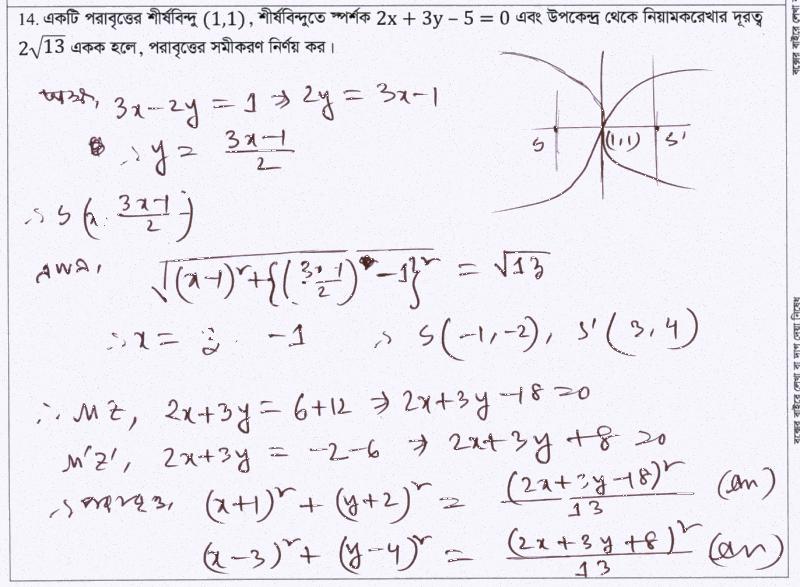 14. একটি পরাবৃত্তের শীর্ষবিন্দু (1,1), শীর্ষবিন্দুতে স্পর্শক 2x + 3y – 5 = 0 এবং উপকেন্দ্র থেকে নিয়ামকরেখার দূরত্ব
2√13 একক হলে, পরাবৃত্তের সমীকরণ নির্ণয় কর।
অক্ষ, 3x-2y = 1 ⇒ 2y = 3x-1
∴ y = (3x-1)/2
S (1,1) S'
∴ S (x, (3x-1)/2)
√((x-1)² + {((3x-1)/2) - 1}²) = √13
∴ x = 3, -1 ∴ S(-1,-2), S'(3,4)
∴ MZ, 2x+3y = 6+12 ⇒ 2x+3y-18=0
M'Z', 2x+3y = -2-6 ⇒ 2x+3y+8=0
∴ পরাবৃত্ত, (x+1)² + (y+2)² = (2x+3y-18)²/13 (Ans)
(x-3)² + (y-4)² = (2x+3y+8)²/13 (Ans)